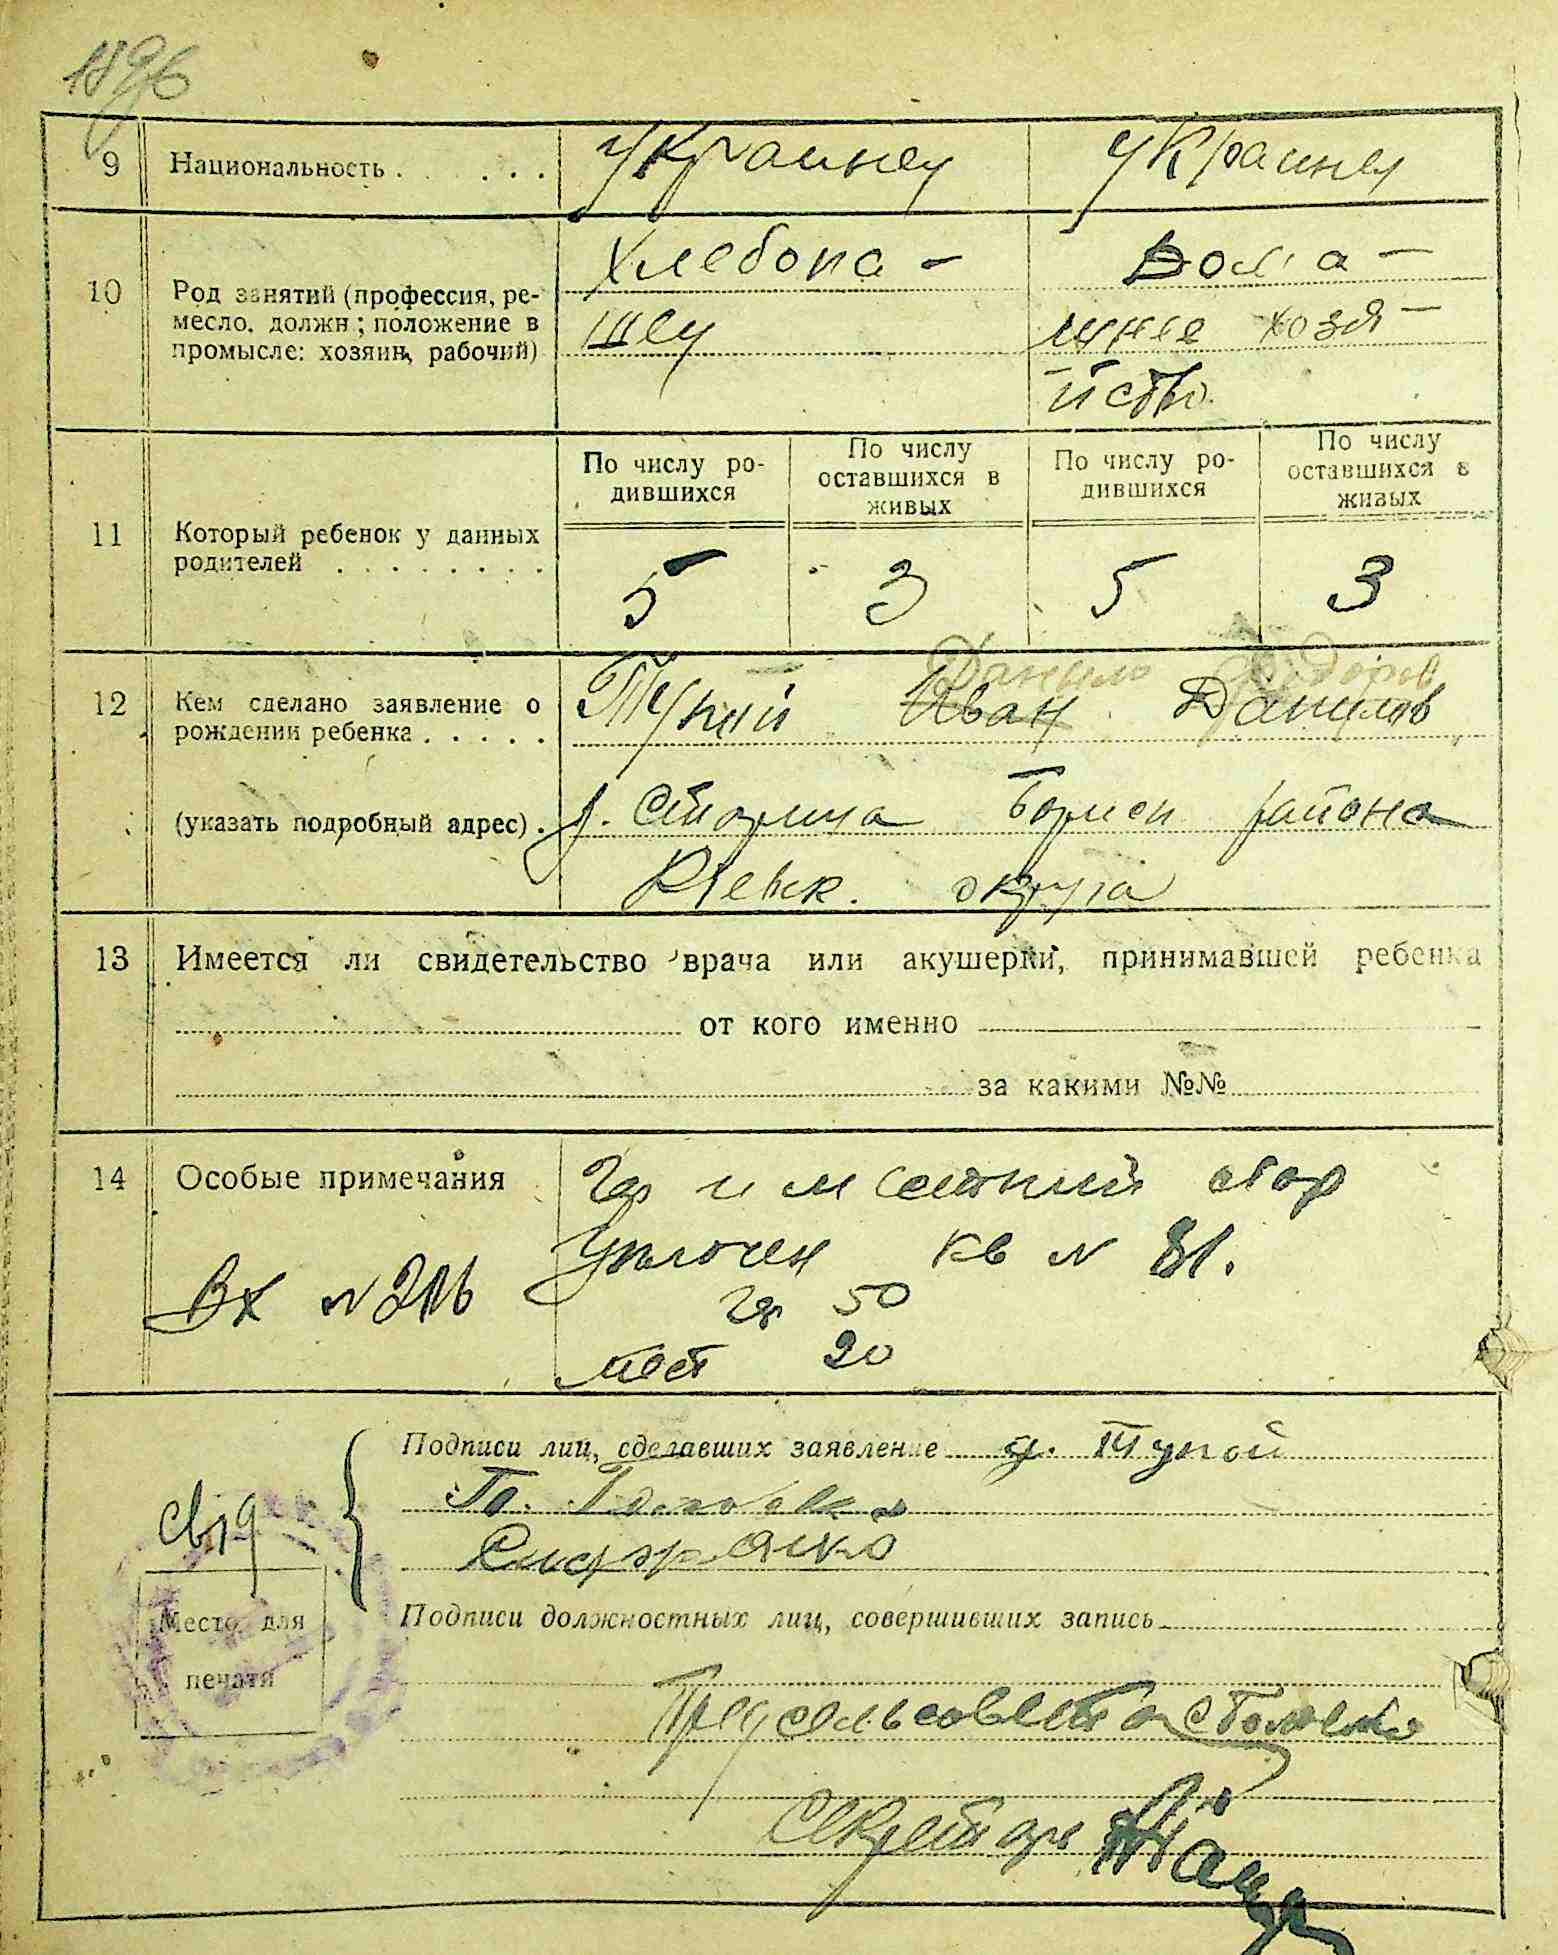 1896
9 Национальность . . . . . . украинец украинец
10 Род занятий (профессия, ре-
месло, должн; положение в
промысле: хозяин, рабочий)
Хлебопа-
шец
Дома-
шнее хозя-
йство
11 Который ребенок у данных
родителей . . . . . . . .
По числу ро-
дившихся
По числу
оставшихся в
живых
По числу ро-
дившихся
По числу
оставшихся в
живых
5 3 5 3
Данило Федоров
12 Кем сделано заявление о
рождении ребенка . . . . .
Тупий Иван Данилов
(указать подробный адрес) .
Борисп района
Киевск. округа
13 Имеется ли свидетельство врача или акушерки, принимавшей ребенка
от кого именно
за какими №№
14 Особые примечания
Гер и местний сбор
Уплочен кв N 81.
Вх N 216
гер 50
мест 20
Подписи лиц, сделавших заявление Тупой
свид
Место для
печати
Подписи должностных лиц, совершивших запись
Предсельсовета
Секретарь